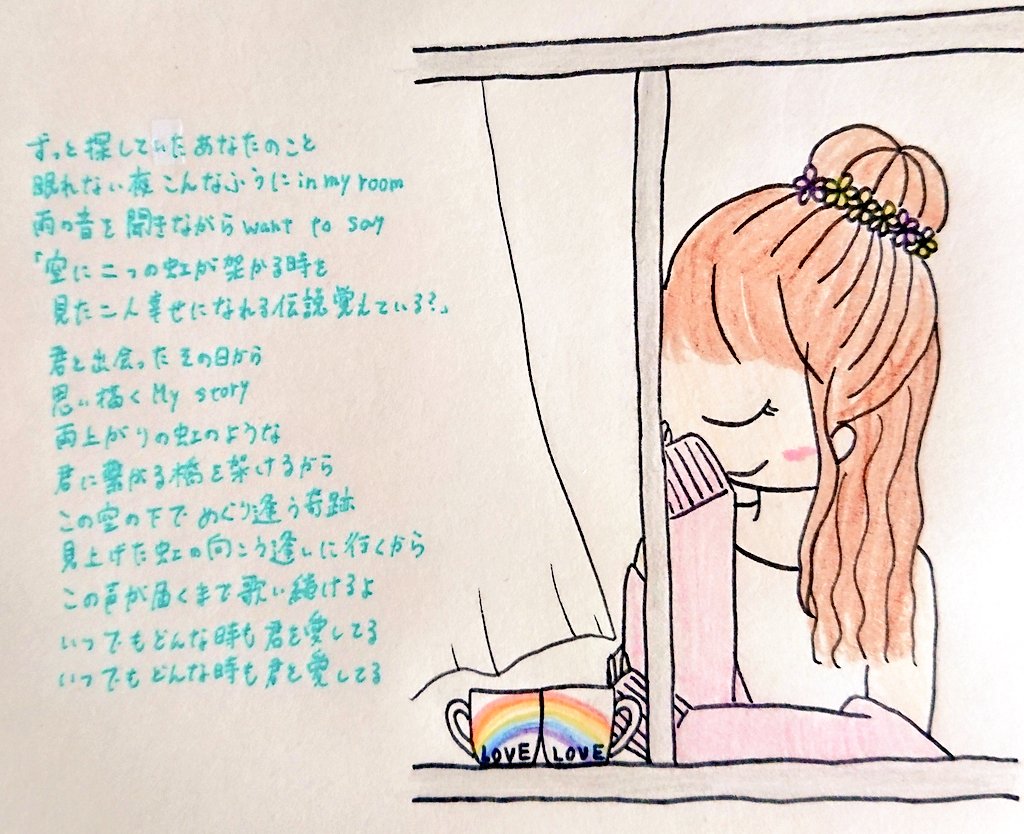 ずっと探していたあなたのこと
眠れない夜こんなふうにin my room
雨の音を聞きながらwant to say
「空に二つの虹が架かる時を
見た二人幸せになれる伝説覚えている?」
君と出会ったその日から
思い描くMy story
雨上がりの虹のような
君に繋がる橋を架けるから
この空の下でめぐり逢う奇跡
見上げた虹の向こう逢いに行くから
この声が届くまで歌い続けるよ
いつでもどんな時も君を愛してる
いつでもどんな時も君を愛してる
LOVE LOVE